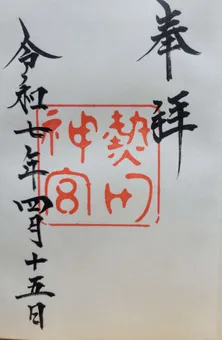 奉拝
熱田神宮
令和七年四月十五日